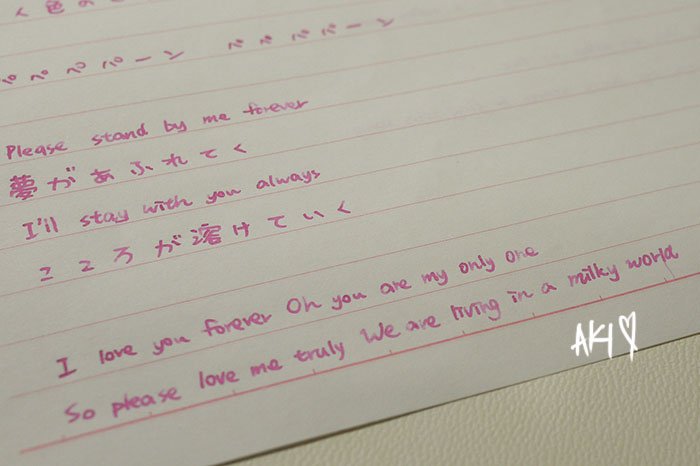 く色の
ペペペパーン ペペペパーン
Please stand by me forever
夢があふれてく
I'll stay with you always
こころが溶けていく
I love you forever Oh you are my only one
So please love me truly We are living in a milky world
AKI♡